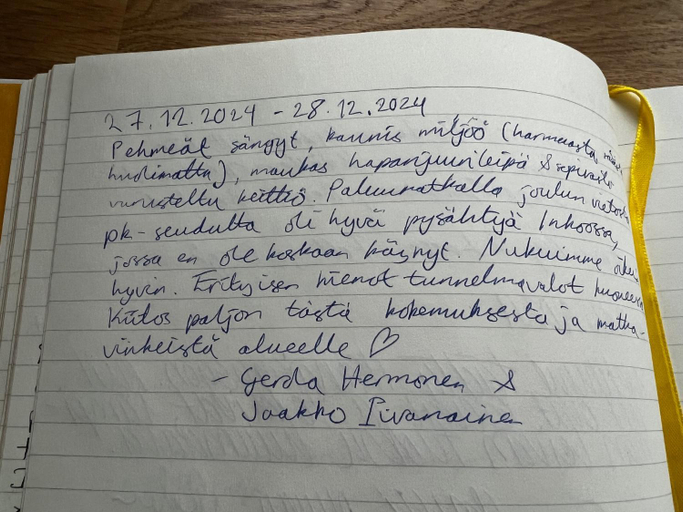 27.12.2024 - 28.12.2024
Pehmeät sängyt, kaunis miljöö (harmaasta
huolimatta), maukas hapanjuurileipä &
varusteltu keittiö. Paluumatkalla joulun vietosta
pk-seudulta oli hyvä pysähtyä Inkoossa,
jossa en ole koskaan käynyt. Nukuimme
hyvin. Erityisen hienot tunnelmavalot huoneessa
Kiitos paljon tästä kokemuksesta ja matka-
vinkeistä alueelle ♡
- Gerda Hermonen &
Jaakko Iivanainen